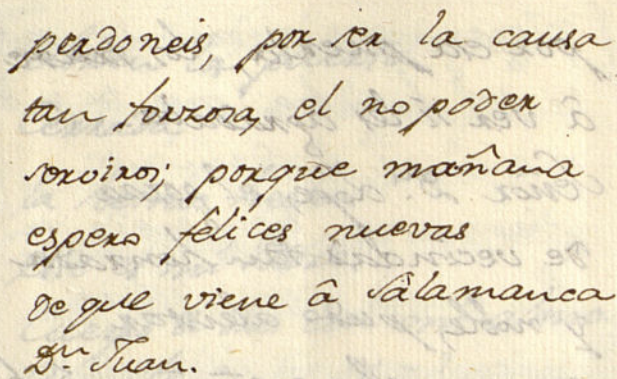 perdoneis, por ser la causa
tan forzosa, el no poder
serviros; porque mañana
espero felices nuevas
de que viene â Sâlamanca
Dn. Juan.